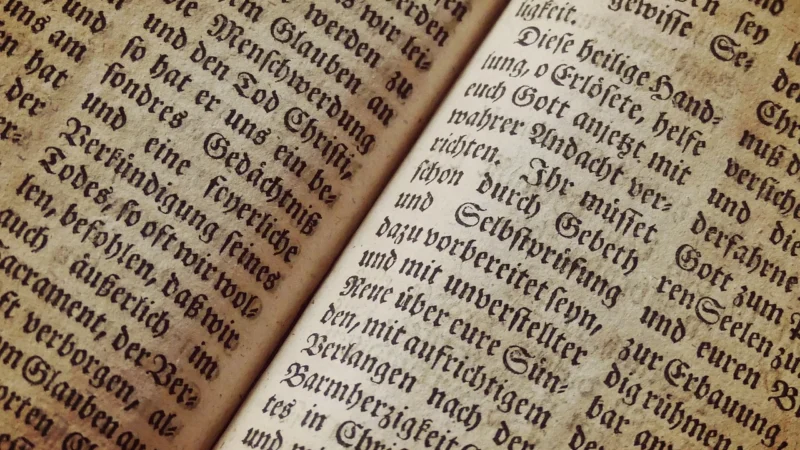 uns am
en hat
der
er-
werden
wir lei-
werden zu
em Glauben an
die Menschwerdung
und den Tod Christi,
so hat er uns ein be-
sondres Gedächtniß
und eine feyerliche
Verkündigung seines
Todes, so oft wir wol-
len, befohlen, daß wir
auch äußerlich im
Sacrament, der Ver-
ft verborgen, al-
m Glauben an
orten
ligkeit.
Diese heilige Hand-
lung, o Erlösete, helfe
euch Gott anjetzt mit
wahrer Andacht ver-
richten. Ihr müsset
schon durch Gebeth
und Selbstprüfung
dazu vorbereitet seyn,
und mit unverstellter
Reue über eure Sün-
den, mit aufrichtigem
Verlangen nach der
Barmherzigkeit
tes in
und
sey
gewisse Se-
nuß
versiche
und die
derfahrne
Gott zum
ren Seelen zu
und euren
zur Erbauung,
dig rühmen
bar